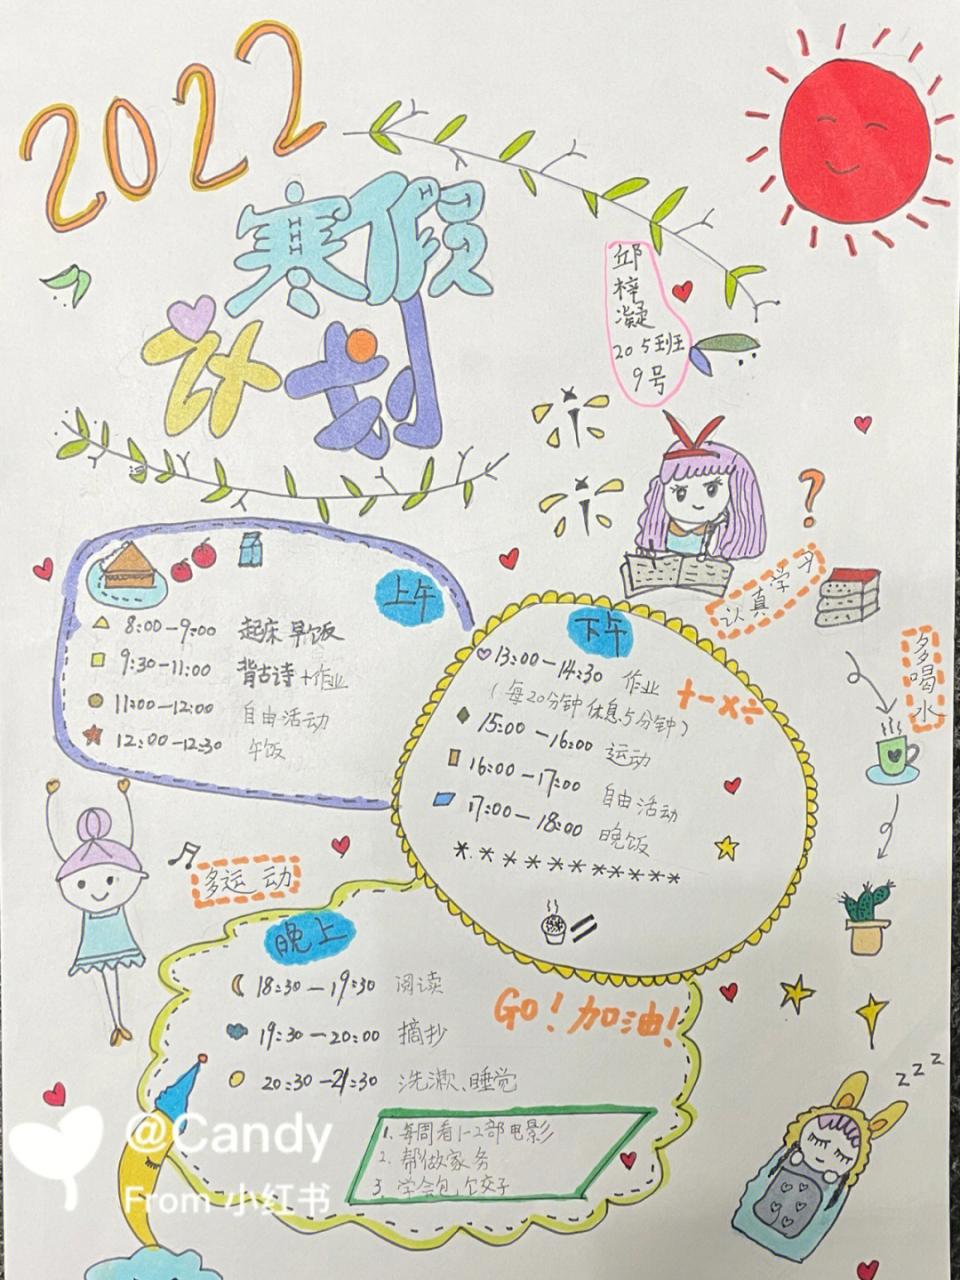 2022
寒假
计划
邱
梓
凝
205班
9号
上午
8:00—9:00 起床 早饭
9:30—11:00 背古诗+作业
11:00—12:00 自由活动
12:00—12:30 午饭
认真学习
?
下午
13:00—14:30 作业
(每20分钟休息5分钟)
+-×÷
15:00—16:00 运动
16:00—17:00 自由活动
17:00—18:00 晚饭
**********
多喝水
多运动
晚上
18:30—19:30 阅读
19:30—20:00 摘抄
20:30—21:30 洗漱、睡觉
Go!加油!
1. 每周看1-2部电影
2. 帮做家务
3. 学会包饺子
zzz
@Candy
From 小红书